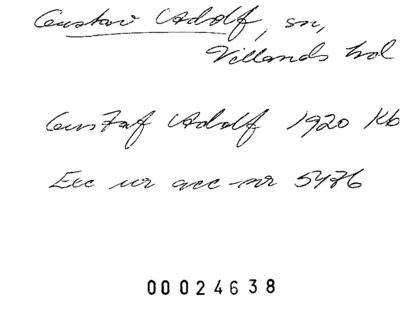 Gustav Adolf, sn,
Villands hd
Gustaf Adolf 1920 Kb
Exc ur acc-nr 5476
00024638